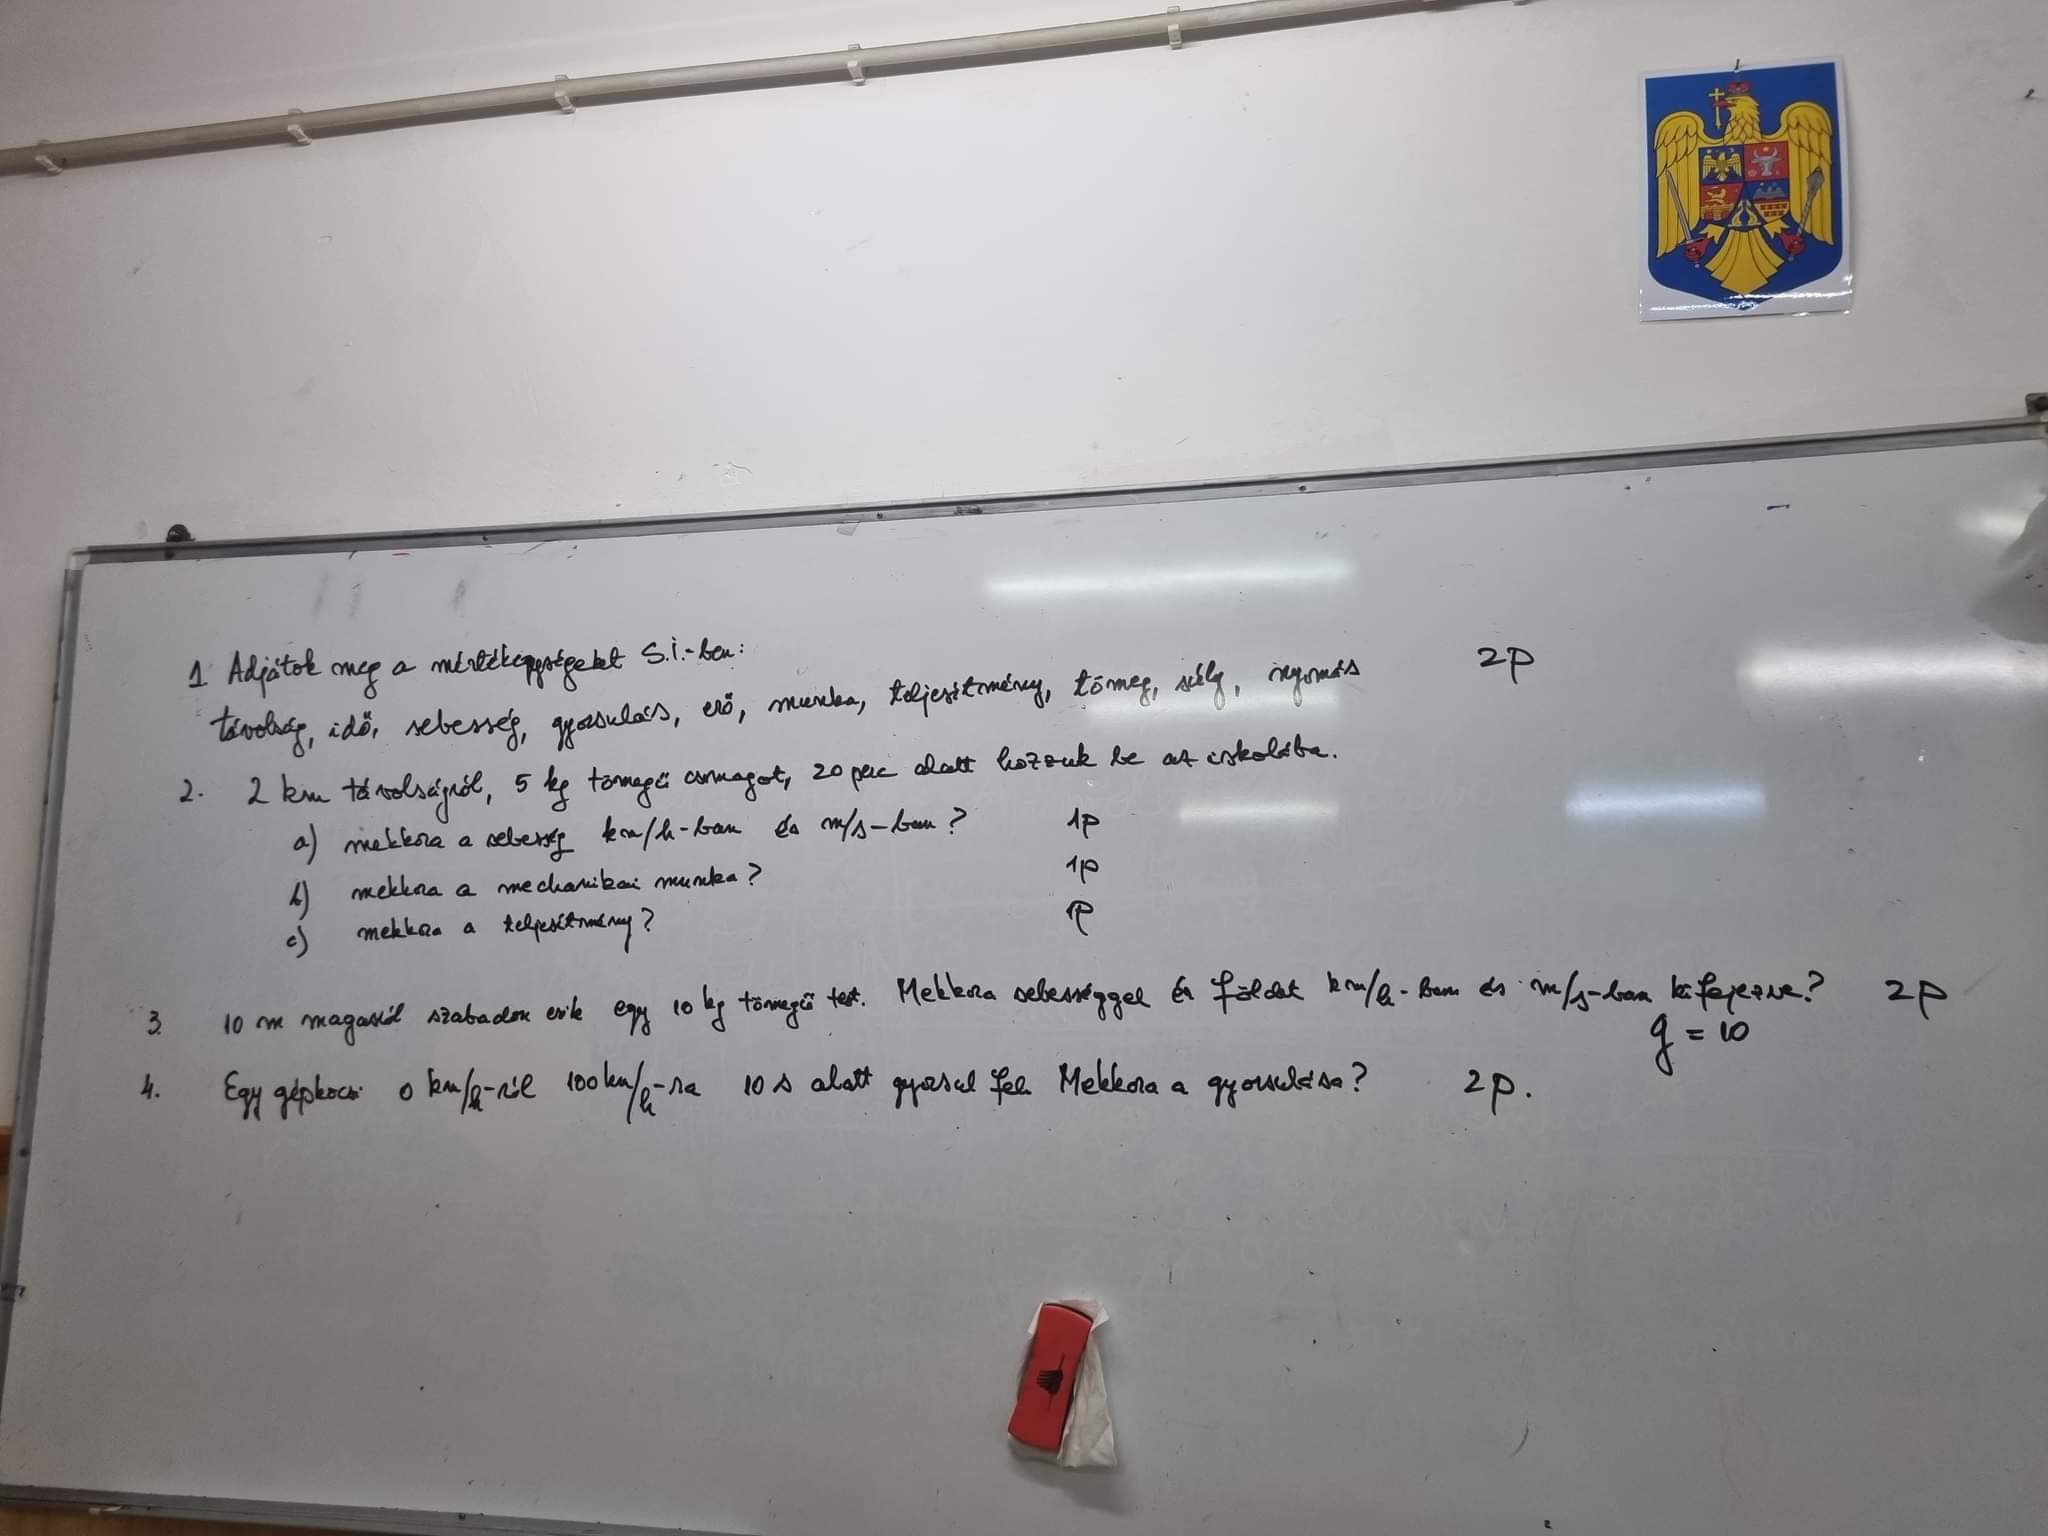 1 Adjátok meg a mértékegységeket S.I.-ben:
távolság, idő, sebesség, gyorsulás, erő, munka, teljesítmény, tömeg, súly, nyomás 2p
2. 2 km távolságról, 5 kg tömegű csomagot, 20 perc alatt hozzuk be az iskolába.
a) mekkora a sebesség km/h-ban és m/s-ban? 1p
b) mekkora a mechanikai munka? 1p
c) mekkora a teljesítmény? 1p
3. 10 m magasról szabadon esik egy 10 kg tömegű test. Mekkora sebességgel ér földet km/h-ban és m/s-ban kifejezve? 2p
g = 10
4. Egy gépkocsi 0 km/h-ról 100km/h-ra 10 s alatt gyorsul fel. Mekkora a gyorsulása? 2p.